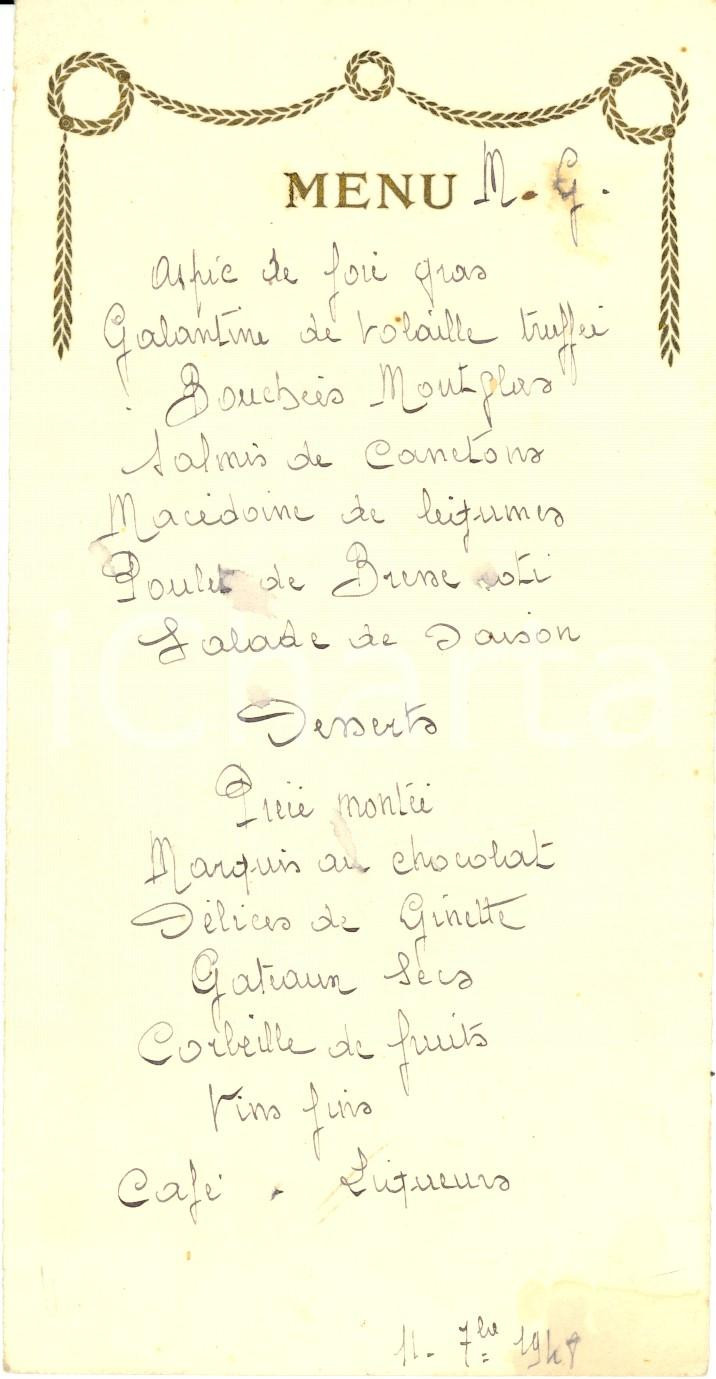 MENU M. G.
Aspic de foie gras
Galantine de Volaille truffée
Bouchées Montglas
Salmis de Canetons
Macédoine de légumes
Poulet de Bresse roti
Salade de Saison
iCharta
Desserts
Pièce montée
Marquis au chocolat
Délices de Ginette
Gateaux Secs
Corbeille de fruits
Vins fins
Café . Liqueurs
11 - 7bre 1948